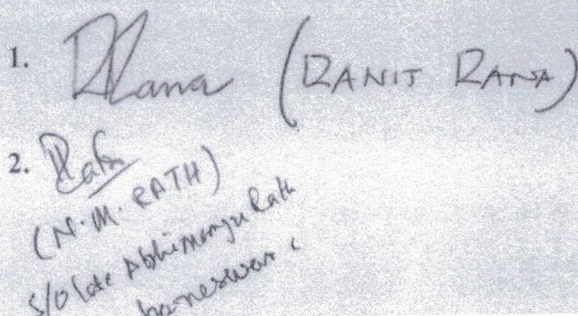 1. RRana (RANIT RANA)
2. Rath
(N.M. RATH)
S/o late Abhimanyu Rath